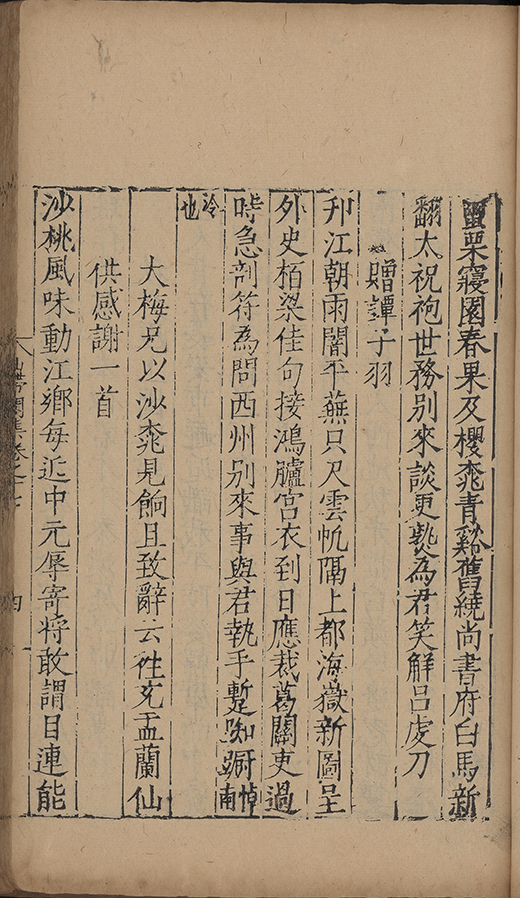 蠒栗寢園春果及櫻桃青谿舊繞尚書府白馬新
翻太祝袍世務別來談更熟為君笑解呂虔刀
贈譚子羽
刋江朝雨闇平蕪只尺雲帆隔上都海嶽新圖呈
外史栢梁佳句接鴻臚宮衣到日應裁葛關吏過
時急剖符為問西州別來事與君執手蹔踟𨄔悼南
泠也
大梅兄以沙桃見餉且致辭云社充盂蘭仙
供感謝一首
沙桃風味動江鄉每近中元辱寄將敢謂目連能
集卷之七
四